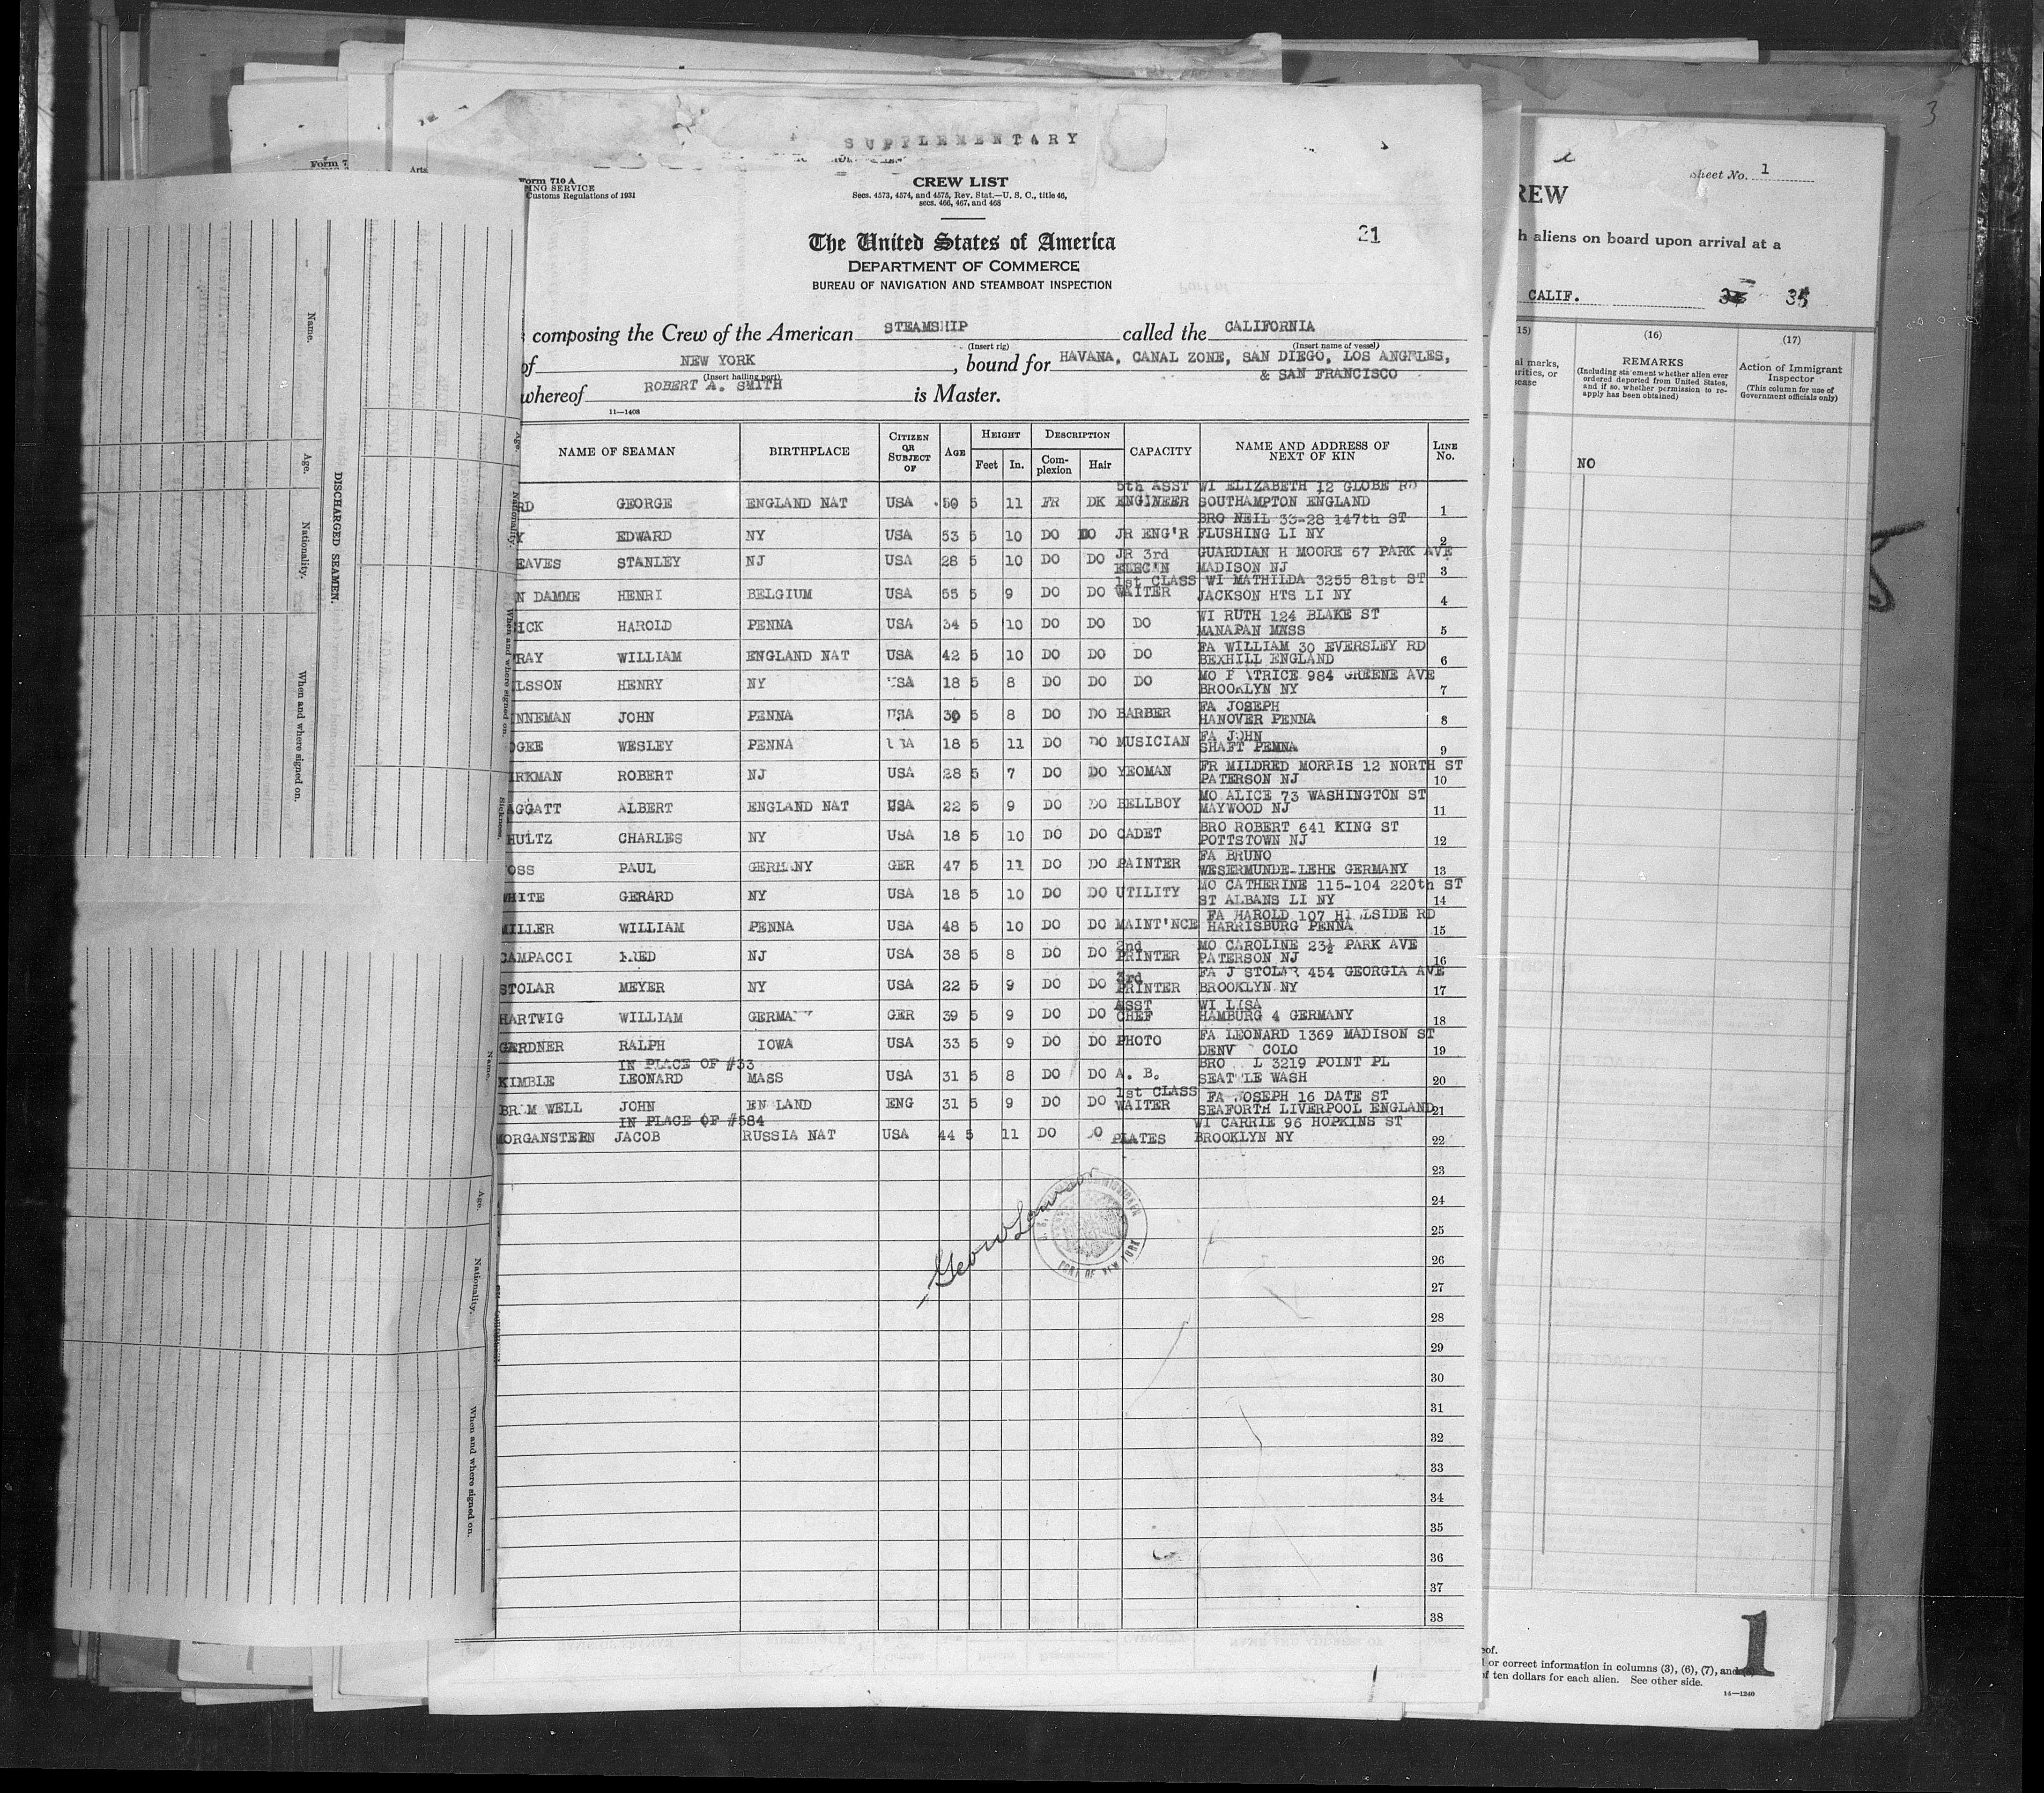 SUPPLEMENTARY
Form 710 A
CREW LIST
Customs Regulations of 1931
Secs. 4573, 4574, and 4575, Rev. Stat.—U. S. C., title 46,
secs. 466, 467, and 468
21
The United States of America
DEPARTMENT OF COMMERCE
BUREAU OF NAVIGATION AND STEAMBOAT INSPECTION
composing the Crew of the American STEAMSHIP called the CALIFORNIA
(Insert rig) (Insert name of vessel)
of NEW YORK, bound for HAVANA, CANAL ZONE, SAN DIEGO, LOS ANGELES,
(Insert hailing port) & SAN FRANCISCO
whereof ROBERT A. SMITH is Master.
11—1408
NAME OF SEAMAN BIRTHPLACE CITIZEN OR SUBJECT OF AGE HEIGHT Feet In. DESCRIPTION Complexion Hair CAPACITY NAME AND ADDRESS OF NEXT OF KIN LINE No.
5th ASST WI ELIZABETH 12 GLOBE RD
RD GEORGE ENGLAND NAT USA 50 5 11 FR DK ENGINEER SOUTHAMPTON ENGLAND 1
BRO NEIL 33-28 147th ST
Y EDWARD NY USA 53 5 10 DO DO JR ENG'R FLUSHING LI NY 2
JR 3rd GUARDIAN H MOORE 67 PARK AVE
EAVES STANLEY NJ USA 28 5 10 DO DO ELEC'N MADISON NJ 3
1st CLASS WI MATHILDA 3255 81st ST
N DAMME HENRI BELGIUM USA 55 5 9 DO DO WAITER JACKSON HTS LI NY 4
WI RUTH 124 BLAKE ST
ICK HAROLD PENNA USA 34 5 10 DO DO DO MANAPAN MASS 5
FA WILLIAM 30 EVERSLEY RD
RAY WILLIAM ENGLAND NAT USA 42 5 10 DO DO DO BEXHILL ENGLAND 6
MO 984 GREENE AVE
LSSON HENRY NY USA 18 5 8 DO DO DO BROOKLYN NY 7
FA JOSEPH
NNEMAN JOHN PENNA USA 30 5 8 DO DO BARBER HANOVER PENNA 8
FA JOHN
OGKE WESLEY PENNA USA 18 5 11 DO DO MUSICIAN SHAFT PENNA 9
FR MILDRED MORRIS 12 NORTH ST
IRKMAN ROBERT NJ USA 28 5 7 DO DO YEOMAN PATERSON NJ 10
MO ALICE 73 WASHINGTON ST
AGGATT ALBERT ENGLAND NAT USA 22 5 9 DO DO BELLBOY MAYWOOD NJ 11
BRO ROBERT 641 KING ST
HULTZ CHARLES NY USA 18 5 10 DO DO CADET POTTSTOWN NJ 12
FA BRUNO
OSS PAUL GERMANY GER 47 5 11 DO DO PAINTER WESERMUNDE-LEHE GERMANY 13
MO CATHERINE 115-104 220th ST
WHITE GERARD NY USA 18 5 10 DO DO UTILITY ST ALBANS LI NY 14
FA HAROLD 107 HILLSIDE RD
MILLER WILLIAM PENNA USA 48 5 10 DO DO MAINT'NCE HARRISBURG PENNA 15
2nd MO CAROLINE 23½ PARK AVE
CAMPACCI FRED NJ USA 38 5 8 DO DO PRINTER PATERSON NJ 16
3rd FA J STOLAR 454 GEORGIA AVE
STOLAR MEYER NY USA 22 5 9 DO DO PRINTER BROOKLYN NY 17
ASST WI LISA
HARTWIG WILLIAM GERMANY GER 39 5 9 DO DO CHEF HAMBURG 4 GERMANY 18
FA LEONARD 1369 MADISON ST
GARDNER RALPH IOWA USA 33 5 9 DO DO PHOTO DENV COLO 19
IN PLACE OF #33 BRO L 3219 POINT PL
KIMBLE LEONARD MASS USA 31 5 8 DO DO A. B. SEATTLE WASH 20
1st CLASS FA JOSEPH 16 DATE ST
BR M WELL JOHN EN LAND ENG 31 5 9 DO DO WAITER SEAFORTH LIVERPOOL ENGLAND 21
IN PLACE OF #584 WI CARRIE 96 HOPKINS ST
MORGANSTERN JACOB RUSSIA NAT USA 44 5 11 DO DO PLATES BROOKLYN NY 22
23
24
25
26
27
28
29
30
31
32
33
34
35
36
37
38
PORT OF NEW YORK
DISCHARGED SEAMEN.
Name.
Age.
Nationality.
When and where signed on.
Name.
Age.
Nationality.
When and where signed on.
3
Sheet No. 1
REW
aliens on board upon arrival at a
CALIF. 35
(15) (16) (17)
REMARKS
(Including statement whether alien ever ordered deported from United States, and if so, whether permission to reapply has been obtained)
Action of Immigrant Inspector
(This column for use of Government officials only)
NO
or correct information in columns (3), (6), (7), and
of ten dollars for each alien. See other side.
14—1240
1